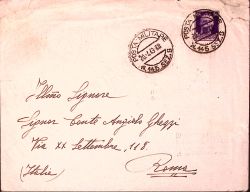 POSTA MILITARE
N. 145 SEZ. G
POSTA MILITARE
Ill.mo Signore
Signor Conte Angiolo Ghezzi
Via XX Settembre, 118
Roma
(Italia)